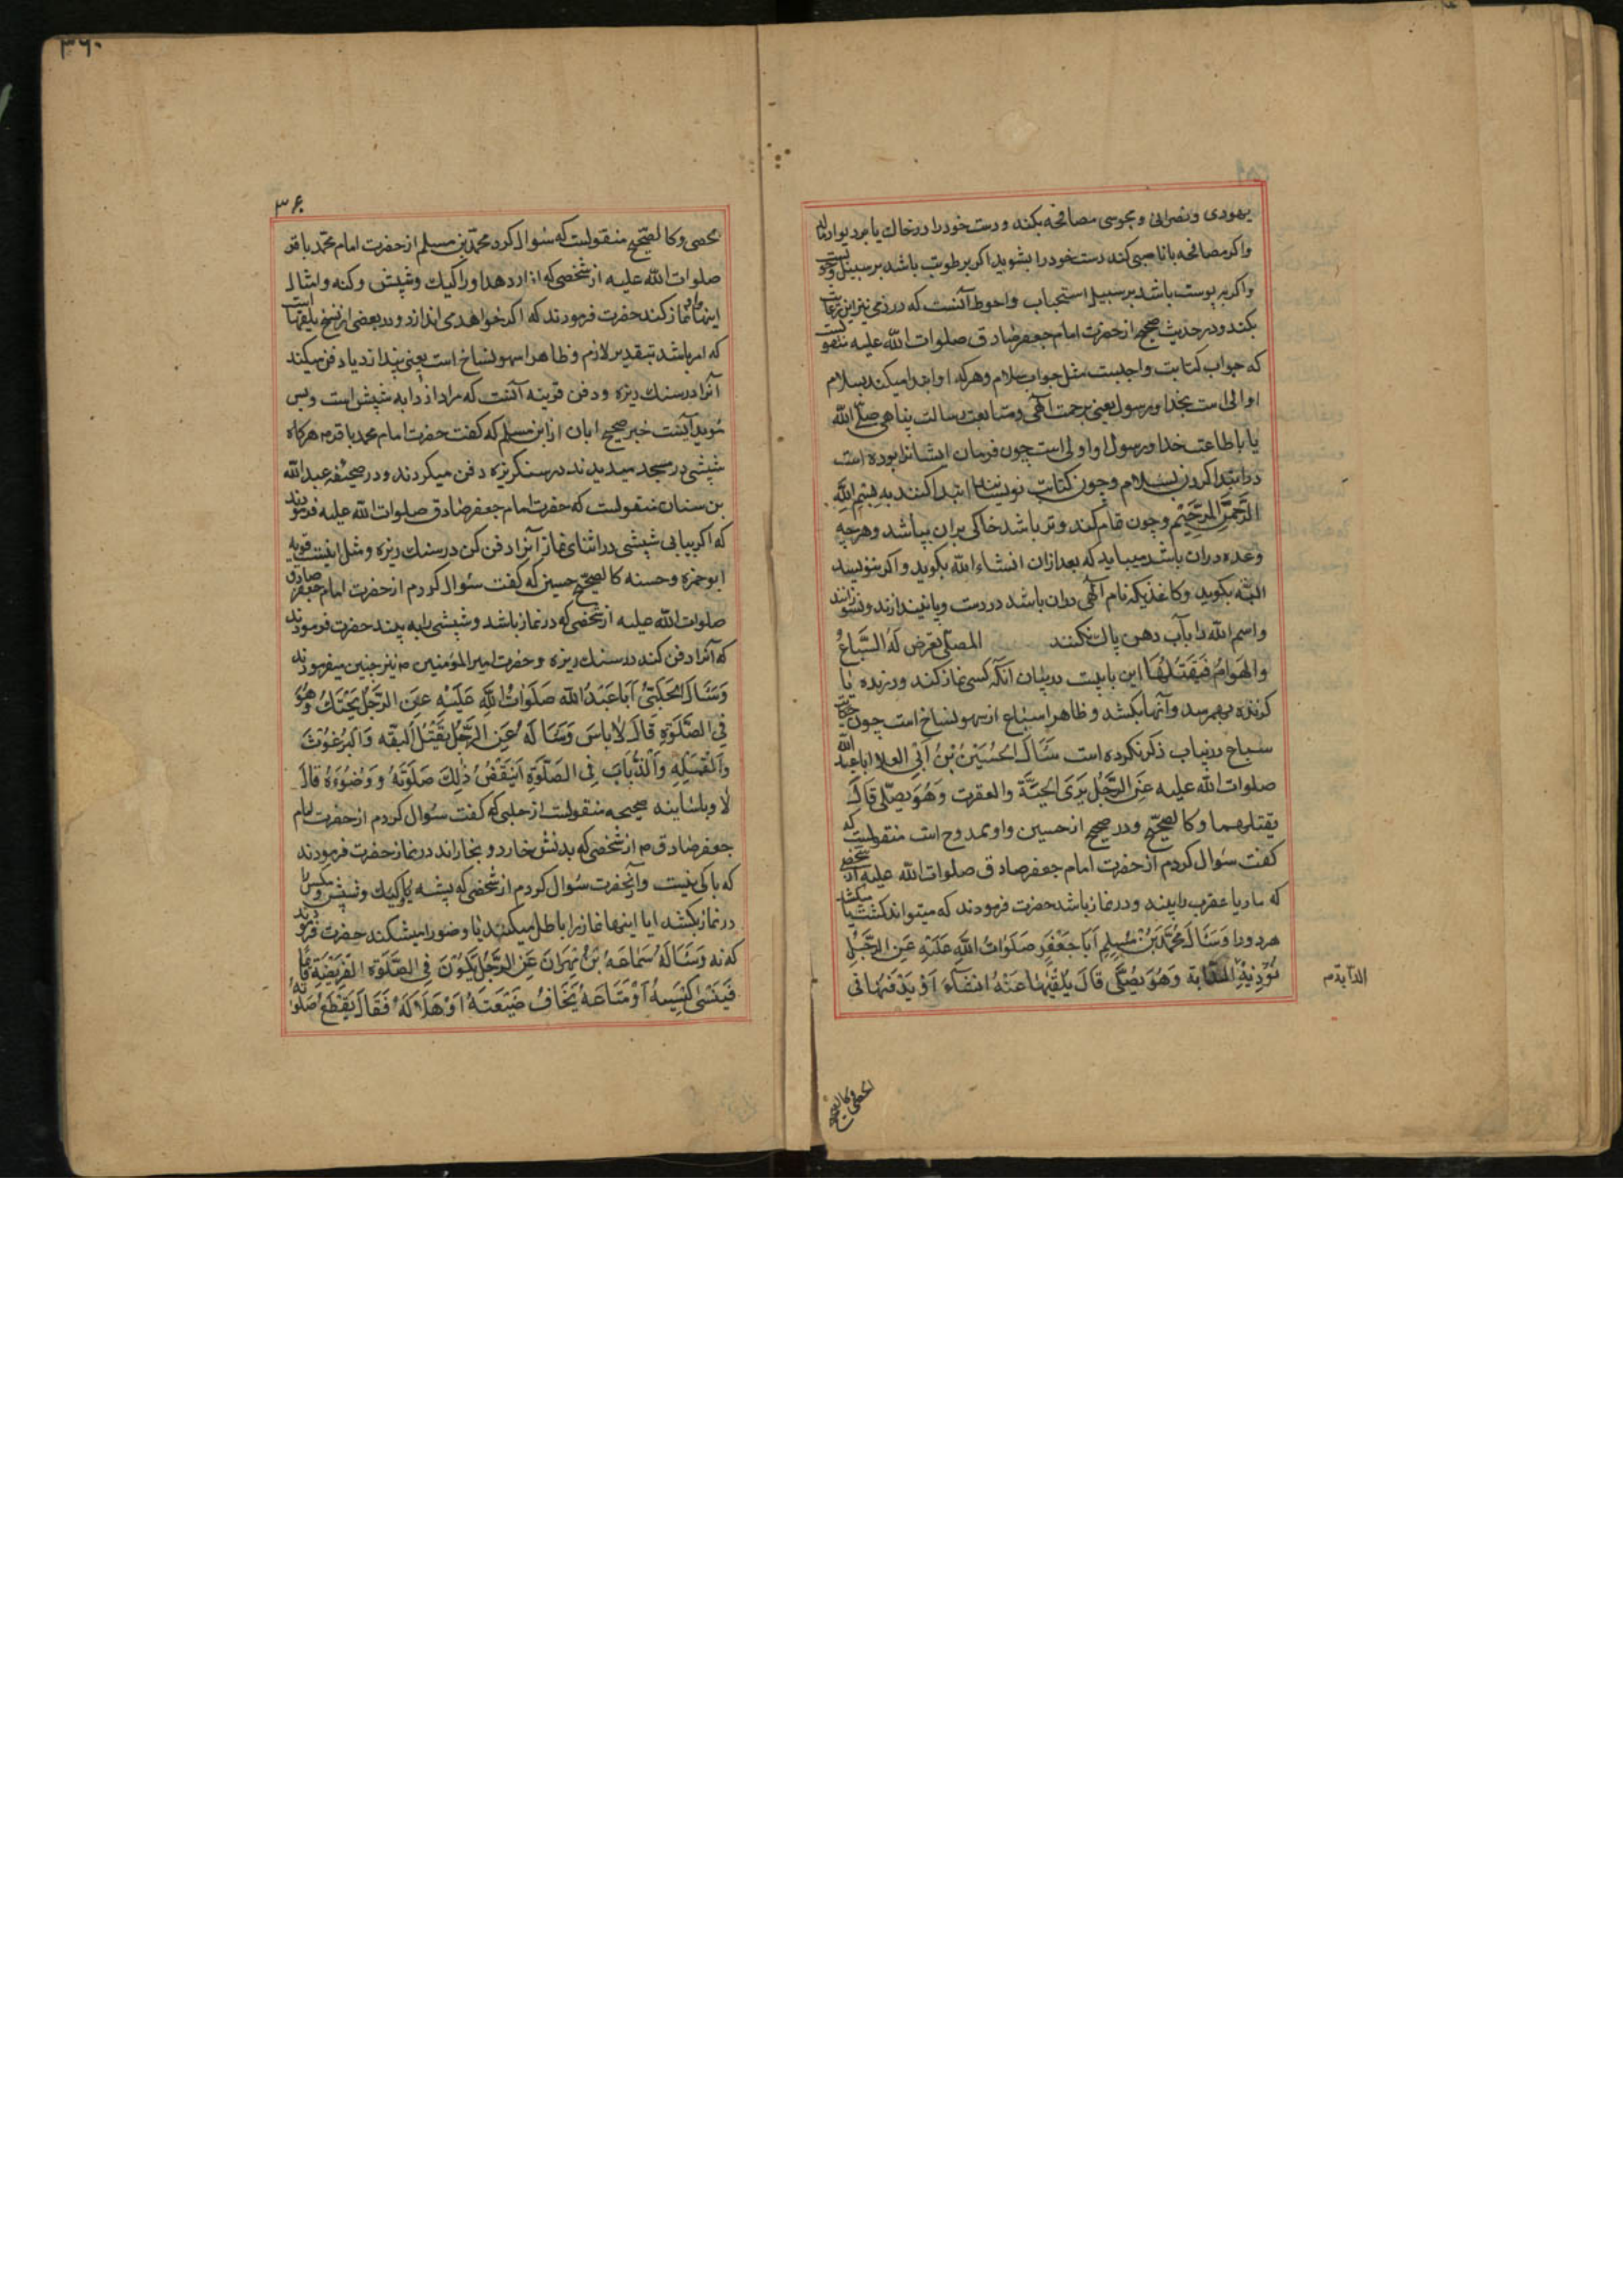 یهودی و نصرانی و مجوسی مصافحه بکند و دست خود را در خاک یا بر دیوار مالد
واکر مصافحه با ناصبی کند دست خود را بشوید اکر برطوبت باشد بر سبیل وجوب
واکر به یبوست باشد بر سبیل استحباب واحوط آنست که در ذمی نیز این رعایت
بکند و در حدیث صحیح از حضرت امام جعفر صادق صلوات الله علیه منقولست
که جواب کتابت واجبست مثل جواب سلام و هر که او ابتدا میکند بسلام
او اولی است بخدا و رسول یعنی برحمت آلهی و متابعت رسالت پناهی صلی الله
یا باطاعت خدا و رسول او اولی است چون فرمان ایشانرا بوده است
در ابتدا کردن بسلام و چون کتابت نویسانند ابتدا کنند به بِسْمِ اللَّهِ
الرَّحْمَنِ الرَّحِيْم و چون تمام کند و تر باشد خاکی بران بپاشد و هر چه
وعده دران باشد میباید که بعد ازان انشاء الله بکوید و اکر ننویسد
البته بکوید و کاغذیکه نام آلهی دران باشد در دست و پا نیندازند و نسوزانند
واسم الله را بآب دهن پاک نکنند المصلّی تعرض لَهُ السِّبَاعُ
والهَوَامُّ فَيَقْتُلُهَا این بابیست در بیان آنکه کسی نماز کند و درنده یا
کزنده بهم رسد و آنها بکشد و ظاهرا سباع از سهو نساخ است چون حکایت
سباع درین باب ذکر نکرده است سَئَالَ الْحُسَيْنُ بْنُ اَبِی العلا ابا عبد الله
صلوات الله علیه عَنِ الرَّجُلِ يَرَى الْحَيَّةَ والعقرب وَهُوَ يصلّی قَالَ
یقتلهما و کالصحیح و در صحیح از حسین و او ممدوح است منقولست که
کفت سؤال کردم از حضرت امام جعفر صادق صلوات الله علیه از شخصی
که مار یا عقرب را بیند و در نماز باشد حضرت فرمودند که میتواند کشت یا میکشد
هر دو را وَسَئَالَ مُحَمَّدُ بْنُ مُسْلِمٍ اَبَا جَعْفَرٍ صَلَوَاتُ اللَّهِ عَلَيْهِ عَنِ الرَّجُلِ
تُؤْذِيهِ الدَّابة وَهُوَ يُصَلِّی قَالَ يُلْقِيْهَا عَنْهُ اِنْشَاءَ اَوْ يَدْفَنُهَا فی
الدابة م
الحصی و کالصحیح
۳۶۰
۳۶۰
لحصی و کالصحیح منقولست که سؤال کرد محمد بن مسلم از حضرت امام محمد باقر
صلوات الله علیه از شخصی که ازار دهد او را کیک و شپش و کنه و امثال
اینها و او نماز کند حضرت فرمودند که اکر خواهد می اندازد و در بعضی از نسخ یلقها است
که امر باشد بتقدیر لازم و ظاهرا سهو نساخ است یعنی بیندازد یا دفن میکند
آنرا در سنک ریزه و دفن قرینه آنست که مراد از دابه شپش است و بس
مؤید آنست خبر صحیح ابان از ابن مسلم که کفت حضرت امام محمد باقر م هر کاه
شپشی در مسجد میدیدند در سنکریزه دفن میکردند و در صحیفه عبد الله
بن سنان منقولست که حضرت امام جعفر صادق صلوات الله علیه فرمودند
که اکر بیابی شپشی در اثنای نماز آنرا دفن کن در سنک ریزه و مثل اینست قویه
ابو حمزه و حسنه کالصحیح حسین که کفت سؤال کردم از حضرت امام جعفر صادق
صلوات الله علیه از شخصی که در نماز باشد و شپشی را به بیند حضرت فرمودند
که آنرا دفن کند در سنک ریزه و حضرت امیر المؤمنین م نیز چنین میفرمودند
وَسَئَالَ الْحَلَبِیُّ اَبَا عَبْدُ الله صَلَوَاتُ اللَّهِ عَلَيْهِ عَنِ الرَّجُلِ يَحْتَكُّ وَهُوَ
فِي الصَّلوٰةِ قَالَ لَا بَاسَ وَسَئَالَهُ عَنِ الرَّجُلِ يَقْتُلُ اَلْبَقَّه وَالْبُرْغُوْثَ
وَالْقُمَّلَه وَالذُّبَابَ فِی الصَّلوٰةِ اَيَنْقُضُ ذٰلِكَ صَلَوٰتَهُ وَ وُضُوْءَهُ قَالَ
لَا و باسانید صحیحه منقولست از حلبی که کفت سؤال کردم از حضرت امام
جعفر صادق م از شخصی که بدنش خارد و بخاراند در نماز حضرت فرمودند
که باکی نیست و از آنحضرت سؤال کردم از شخصی که پشه یا کیک و شپش و مکس را
در نماز بکشد ایا اینها نماز را باطل میکند یا وضو را میشکند حضرت فرمودند
که نه وَسَئَالَهُ سَمَاعَةُ بْنُ مِهْرَانَ عَنِ الرَّجُلِ يَكُوْنَ فِی الصَّلَوٰةِ الفَرِيْضَةِ قَائِمًا
فَيَنْسٰی كِيْسَهُ اَوْ مَتَاعَهُ يَخَافُ ضَيْعَتَهُ اَوْ هَلَاكَهُ فَقَالَ يَقْطَعُ صَلٰوتَهُ